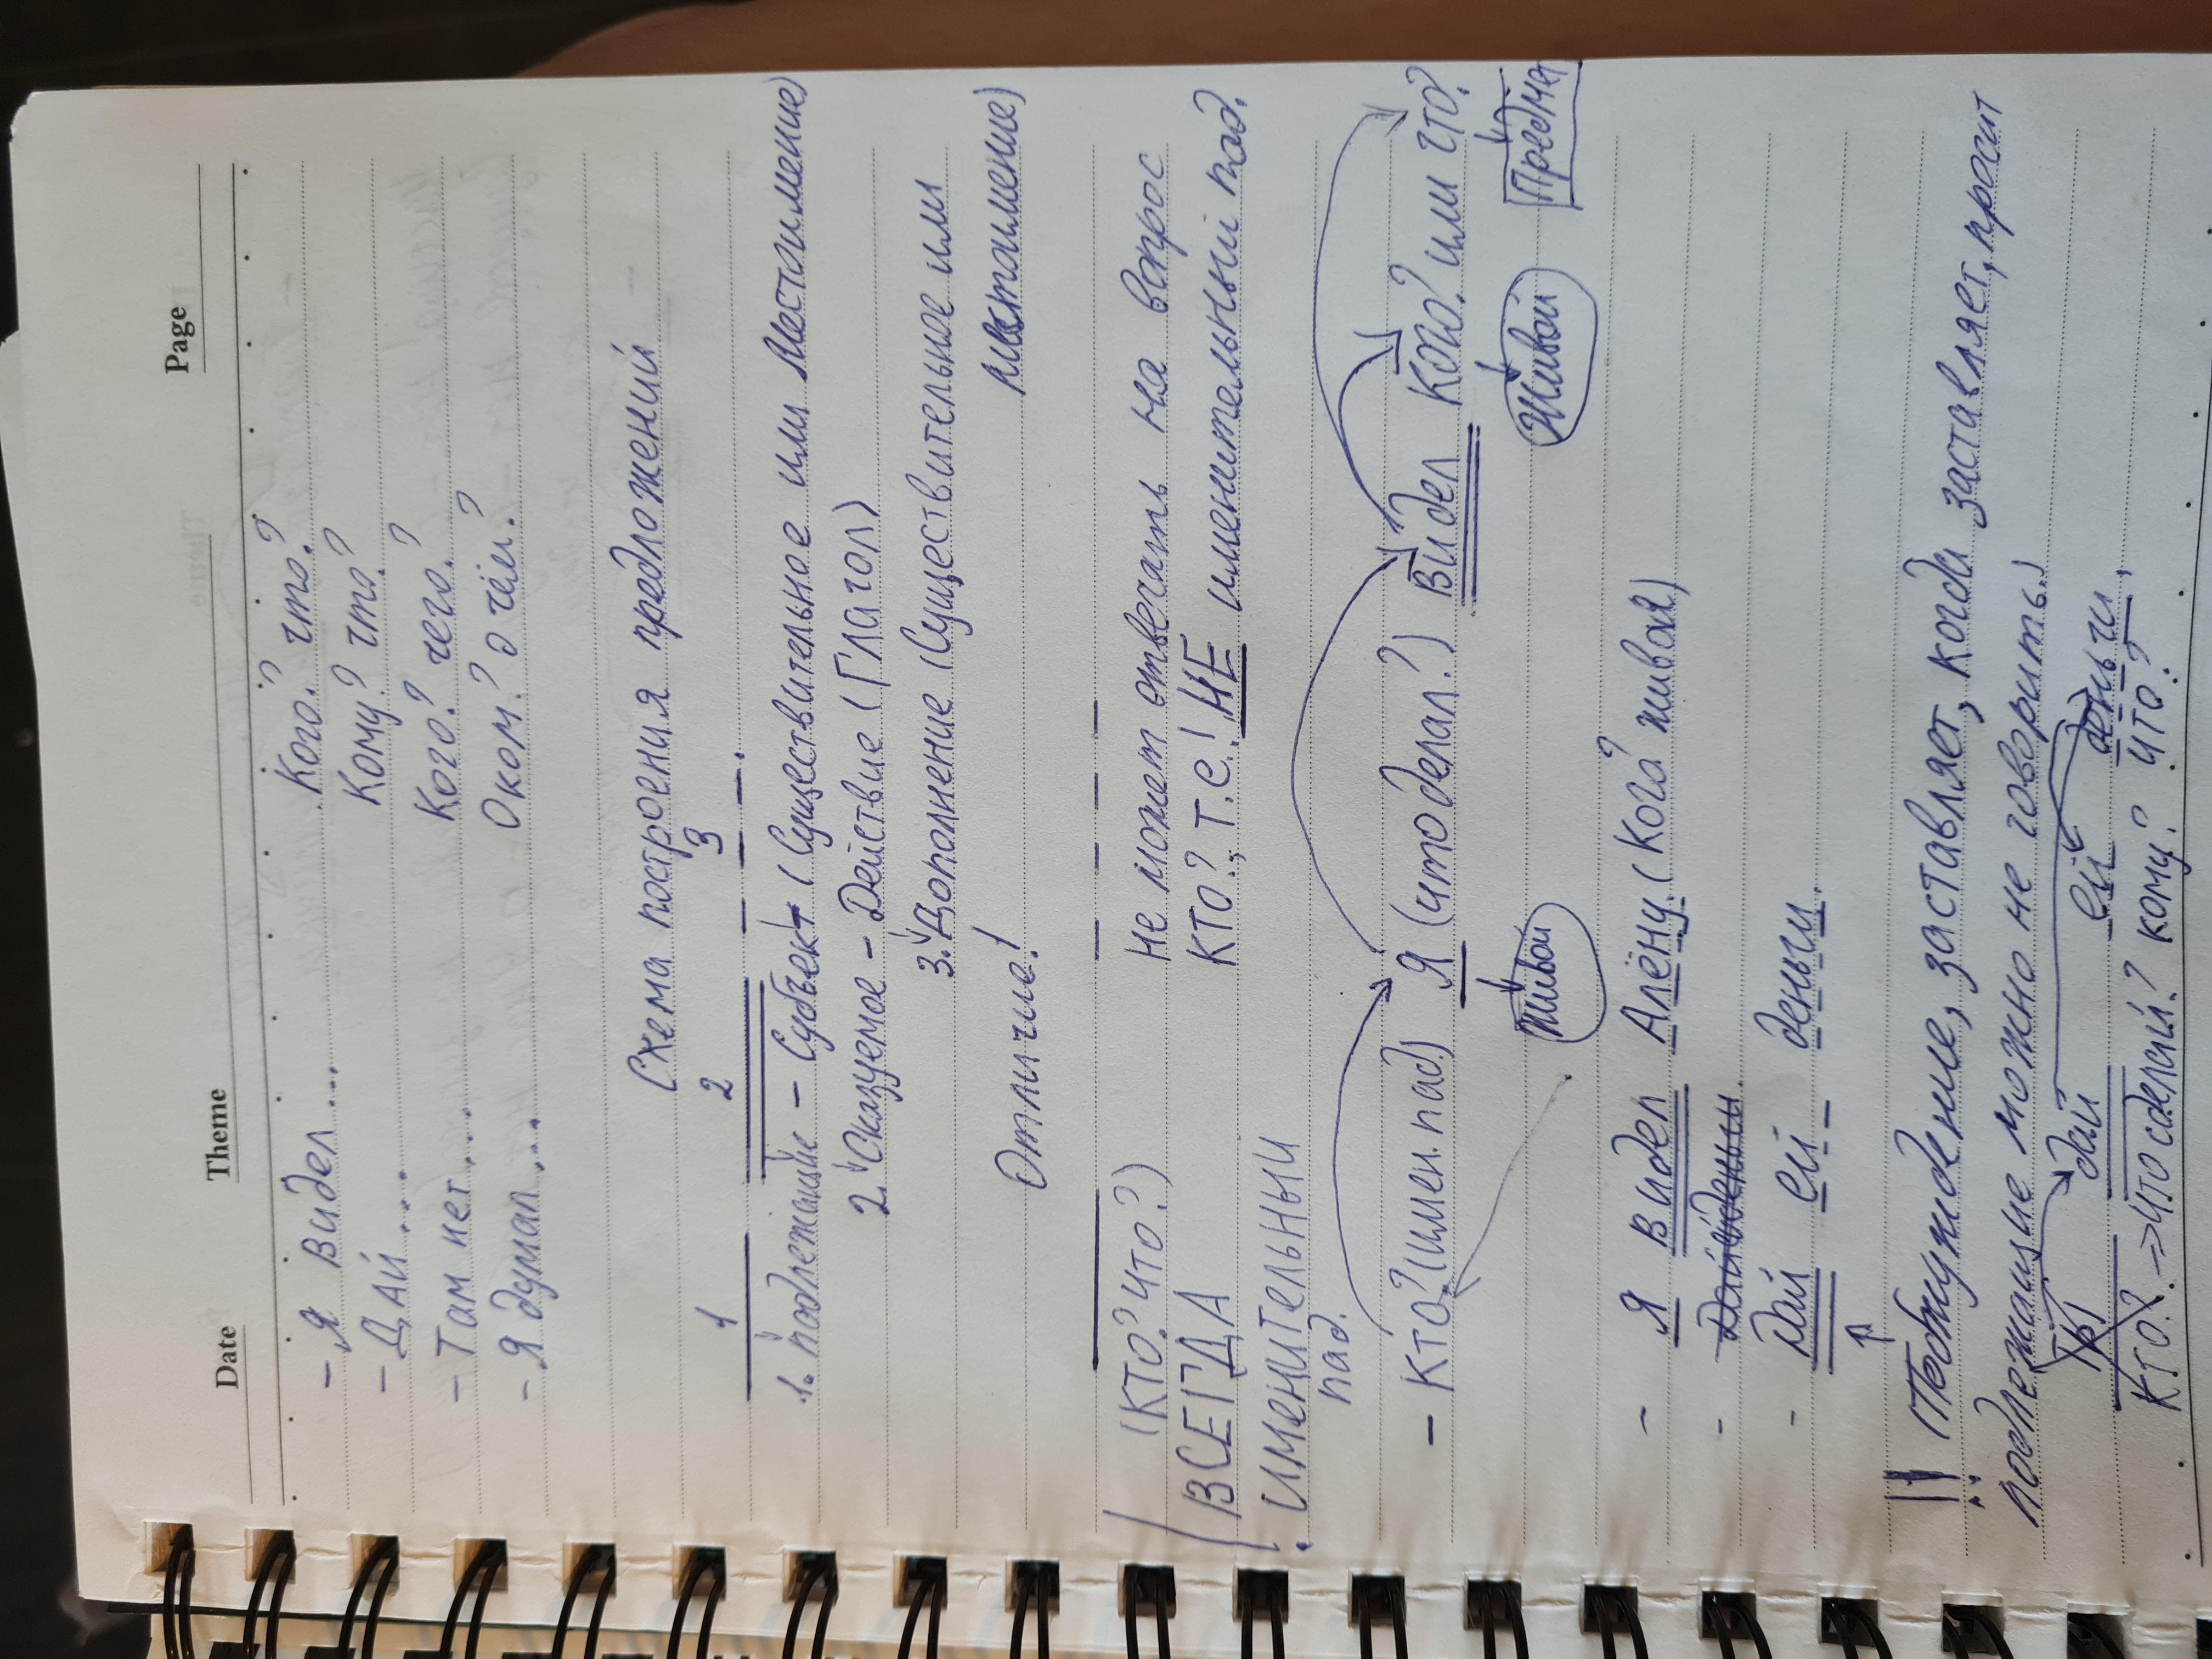 Date Theme Page
- Я видел.... Кого? что?
- ДАЙ.... Кому? что?
- Там нет.... Кого? чего?
- Я думал.... О ком? о чём?
Схема построения предложений
1 2 3
1. Подлежащие - Субъект (Существительное или Местоимение)
2. Сказуемое - Действие (Глагол)
3. Дополнение (Существительное или
местоимение)
Отличие!
(КТО? ЧТО?) Не может отвечать на вопрос
ВСЕГДА КТО?, т.е.! НЕ именительный пад.
ИМЕНИТЕЛЬНЫЙ
пад.
- КТО? (имен. пад) Я (что делал?) видел Кого? или что?
живой Живой Предмет
- Я видел Алёну. (Кого? живая)
-
- Дай ей деньги.
!! (Побуждение, заставляет, когда заставляет, просит
подлежащие можно не говорить!)
Ты дай ей деньги.
КТО? => что сделай? кому? что?